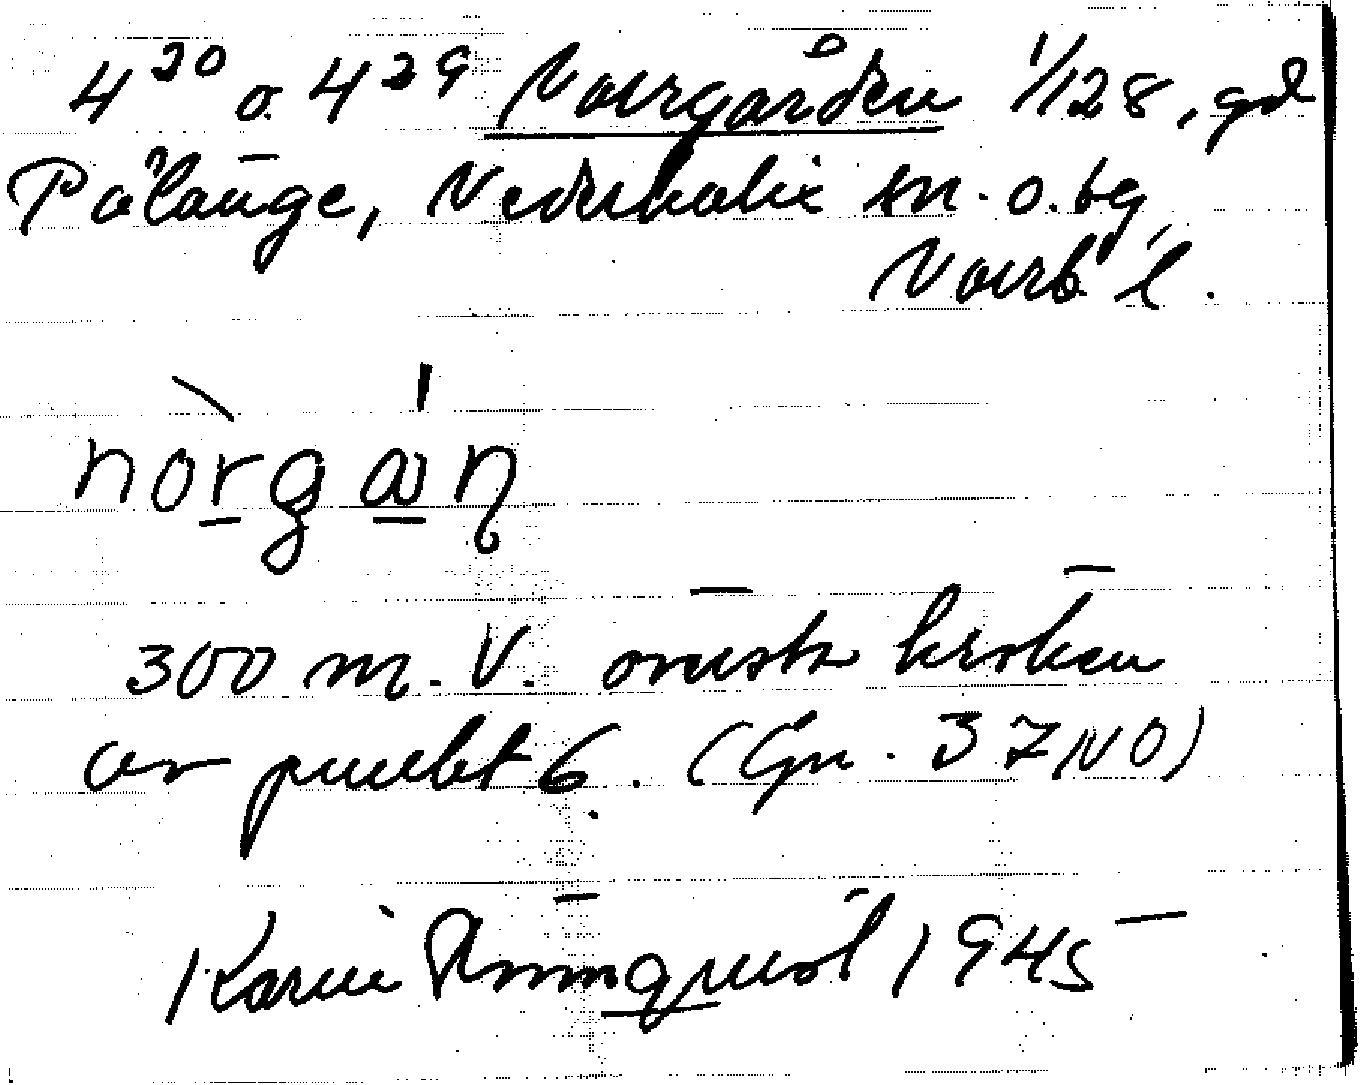 4³⁰ o. 4²⁹ Norrgården 1/128, gd
Pålänge, Nederkalix sn. o. bg
Norrb. l.
nòrgán
300 m. V. ovanstr kröken
av punkt 6. (Gn. 37NO)
Karin Rönnquist 1945